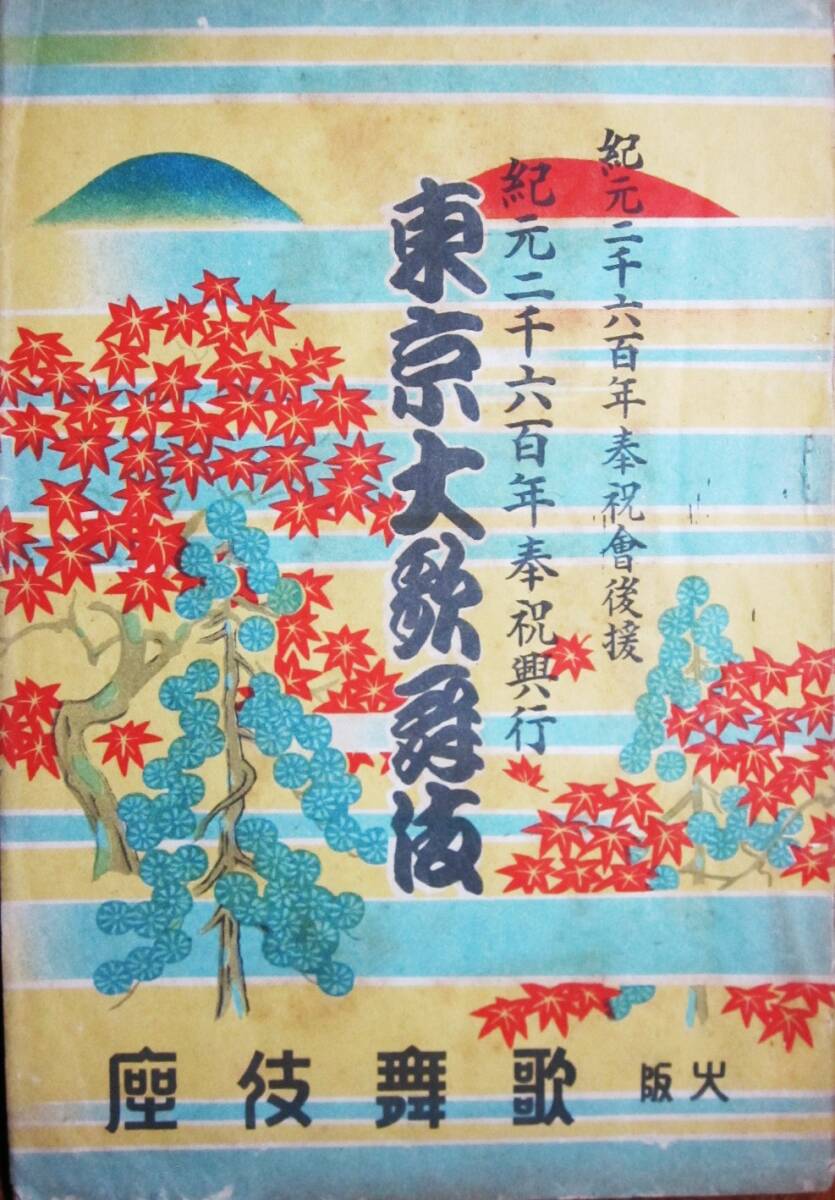 紀元二千六百年奉祝會後援
紀元二千六百年奉祝興行
東京大歌舞伎
大阪
歌舞伎座